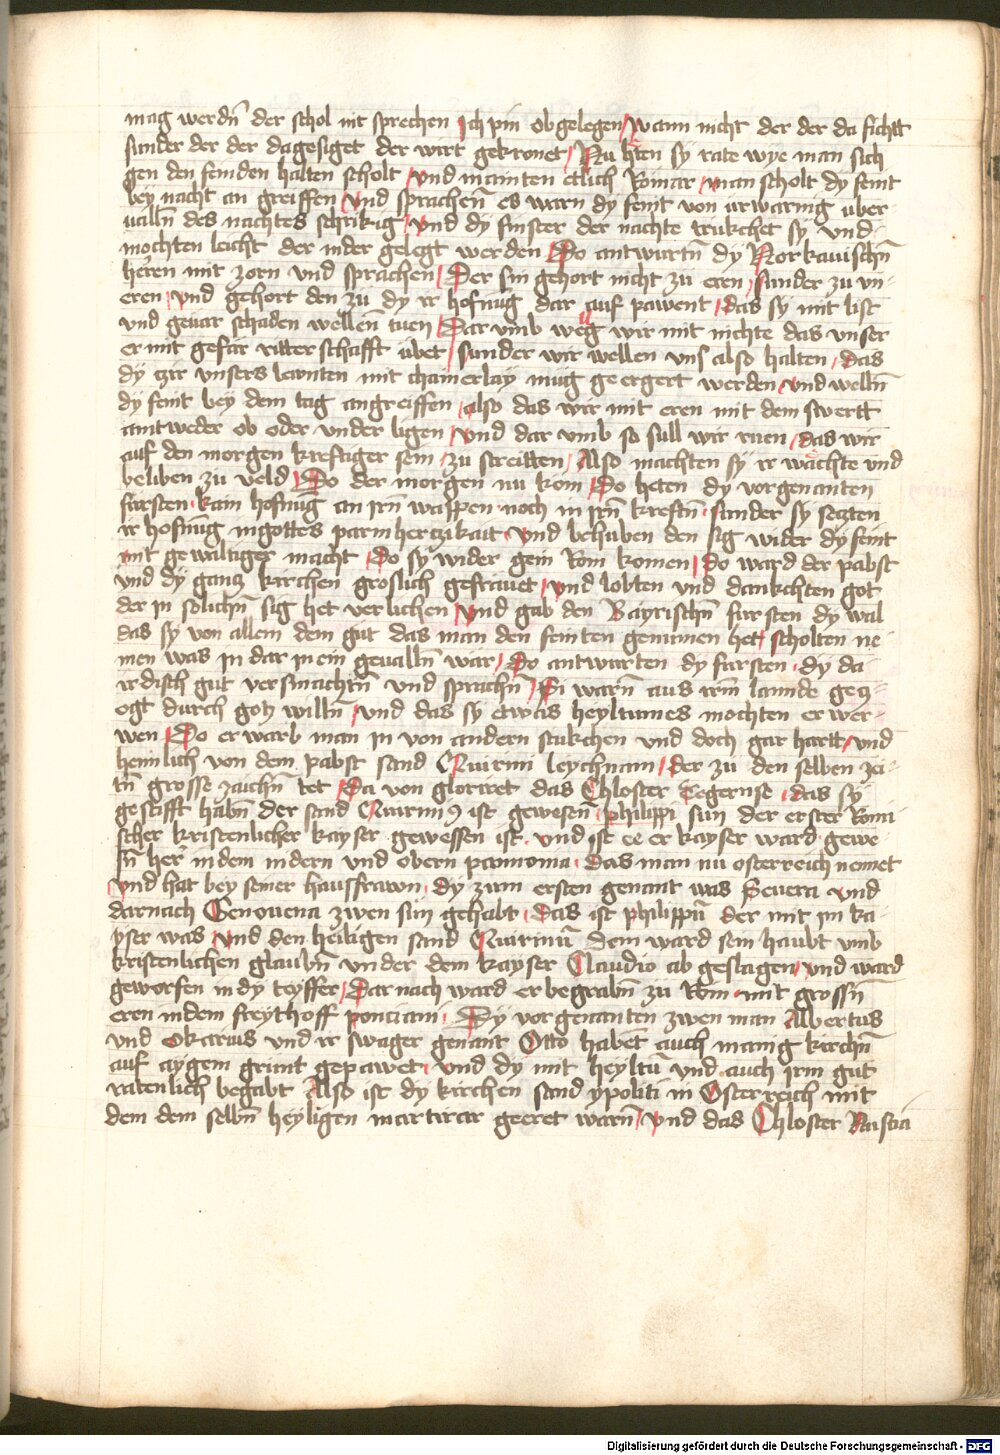 mag werdn̄ der schol nit sprechen Ich pin ob gelegen / wann nicht der der da ficht
sunder der der da gesiget der wirt gekronet / Nu hten sy rate wye man sich
gen den feinden halten scholt / vnd mainten etlich Römar / man scholt dy feint
bey nacht an greiffen / vnd sprachen̄ es warn dy feint von vrwaring vber
valln̄ des nachtes schrikig / vnd dy finster der nachte trukchet sy vnd
mochten leicht der nider gelegt werden / Do antwurtn̄ dy Norkauischn̄
heren mit zorn vnd sprachen / Der sin gehort nicht zu eren / sunder zu vn-
eren / vnd gehort den zu dy ir hofnūg dar auf pawent / das sy mit list
vnd geuar schaden wellen̄ tuen / Dar vmb weg wir mit nichte das vnser
er mit gefar ritter schafft übet / sunder wir wellen vns also halten / das
dy czir vnsers leanten mit chainerlay müg ge ergert werden / vnd welln̄
dy feint bey dem tag angreiffen / also das wir mit eren mit dem swertt
aintweder ob oder vnder ligen / vnd dar vmb so süll wir ruen / das wir
auf den morgen kreftiger sein / zu streitten / Also machten sy ir wachte vnd
beliben zu veld / Do der morgen nu kom / Do heten dy vorgenanten
fürsten kain hofnūg an irn̄ wappen noch in irn̄ kreftn̄ sunder sy seczten
ir hofnūg in gottes parmherczikait / vnd behuben den sig wider dy feint
mit gewaltiger macht / do sy wider gein Rom komen / Do ward der pabst
vnd dy gancz kirchen groslich gefrawet / vnd lobten vnd dankchten got
der in solichn̄ sig het verlichen / vnd gab den Bayrischn̄ fürsten dy wal
das sy von allem dem gut das man den feinten genumen het / scholten ne
men was in dar in ein geualln̄ wär / Do antwurten dy fürsten / dy da
irdisch gut versmachtn̄ vnd sprachn̄ / Si warn̄ aus irm lannde gecz-
ogt durch gotz willn̄ / vnd das sy etwas heyltumes mochten er wer-
wen / Do er warb man in von andern stukchen vnd doch gar hartt / vnd
heimlich von dem pabst sand Quirini leychnam / der zu den selben zei
tn̄ grosse zaichn̄ tet / Da von gloriret das Chloster Tegernse / das sy
gestifft habn̄ der sand Quirin9 ist gewesen̄ / philippi sun der erster Römi
scher kristenlicher kayser gewessen ist / vnd ist ee er kayser ward gewe
sn̄ her in dem indern vnd obern pannonia / das man nu osterreich nennet
vnd hat bey seiner hausfrawn / dy zum ersten genant was Seuera vnd
darnach Genouena zwen sün gehabt / Das ist philippū der mit im ka-
yser was / vnd den heiligen sand Quirinū dem ward sein haubt vmb
kristenlichen glaubn̄ vnder dem kayser Claudio ab geslagen / vnd ward
geworfen in dy teyffer / Dar nach ward er begrabn̄ zu Rom mit grossn̄
eren in dem freythoff ponciani / Dy vorgenanten zwen man Albertus
vnd Okarius vnd ir swager genant Otto haben auch manig kirchn̄
auf aygem grunt gepawet / vnd dy mit heyltū vnd auch irm gut
ratenlich begabt / Also ist dy kirchen sand ypoliti in Osterreich mit
dem dem selbn̄ heyligen martirar geeret warn̄ / vnd das Chloster